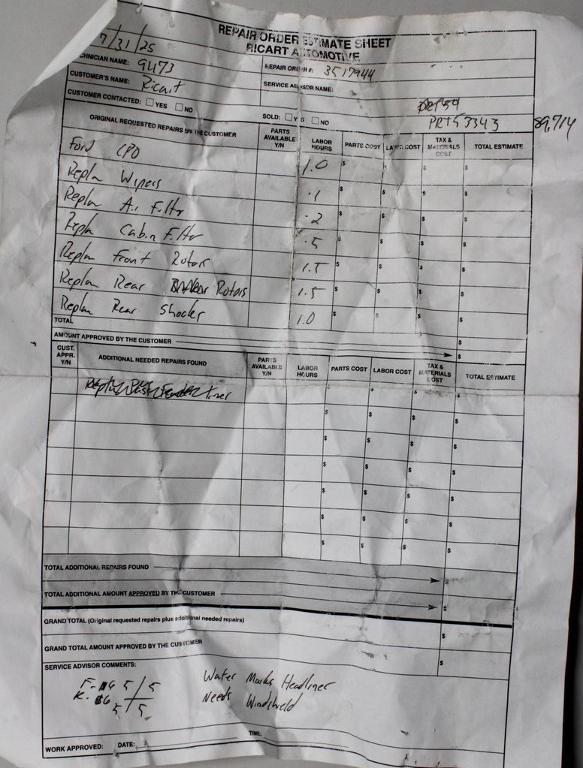 REPAIR ORDER ESTIMATE SHEET
RICART AUTOMOTIVE
7/31/25
TECHNICIAN NAME: 9473
REPAIR ORDER #: 3517944
CUSTOMER'S NAME: Ricart
SERVICE ADVISOR NAME:
CUSTOMER CONTACTED: YES NO
SOLD: YES NO
PRT53343
89,714
ORIGINAL REQUESTED REPAIRS BY THE CUSTOMER PARTS AVAILABLE Y/N LABOR HOURS PARTS COST LABOR COST TAX & MATERIALS COST TOTAL ESTIMATE
Ford CPO 1.0 $ $ $ $
Replace Wipers .1 $ $ $ $
Replace Air Filtr .2 $ $ $ $
Replace Cabin Filtr .5 $ $ $ $
Replace Front Rotors 1.5 $ $ $ $
Replace Rear Rotors 1.5 $ $ $ $
Replace Rear Shocks 1.0 $ $ $ $
TOTAL $
AMOUNT APPROVED BY THE CUSTOMER $
CUST. APPR. Y/N ADDITIONAL NEEDED REPAIRS FOUND PARTS AVAILABLE Y/N LABOR HOURS PARTS COST LABOR COST TAX & MATERIALS COST TOTAL ESTIMATE
Liner $ $ $ $
$ $ $ $
$ $ $ $
$ $ $ $
$ $ $ $
$ $ $ $
$ $ $ $
TOTAL ADDITIONAL REPAIRS FOUND $
TOTAL ADDITIONAL AMOUNT APPROVED BY THE CUSTOMER $
GRAND TOTAL (Original requested repairs plus additional needed repairs) $
GRAND TOTAL AMOUNT APPROVED BY THE CUSTOMER $
SERVICE ADVISOR COMMENTS:
F- 6 5/5 Water Marks Headliner
R- 6 5/5 Needs Windshield
WORK APPROVED: DATE: TIME: